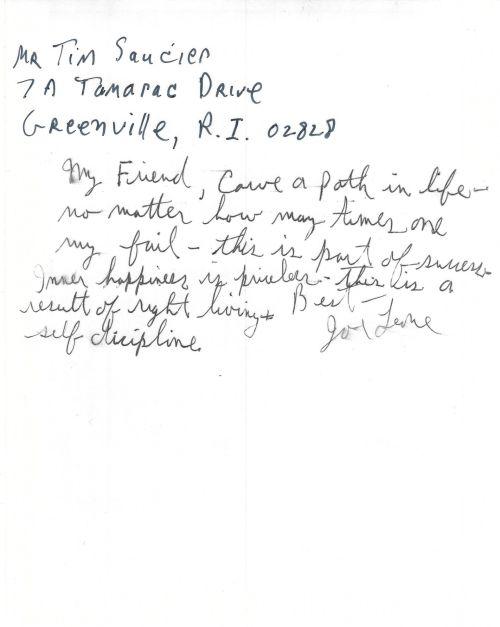 MR Tim Saucier
7A Tamarac Drive
Greenville, R.I. 02828
My Friend, Carve a path in life-
no matter how many times one
my fail - this is part of success-
Inner happiness is priceless - This is a
result of right living +
self discipline
Best -
Joe Leone